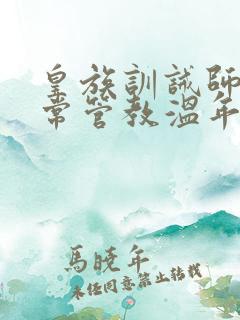 皇族訓誡師
常管教溫年
馬曉年
未經同意禁止轉載